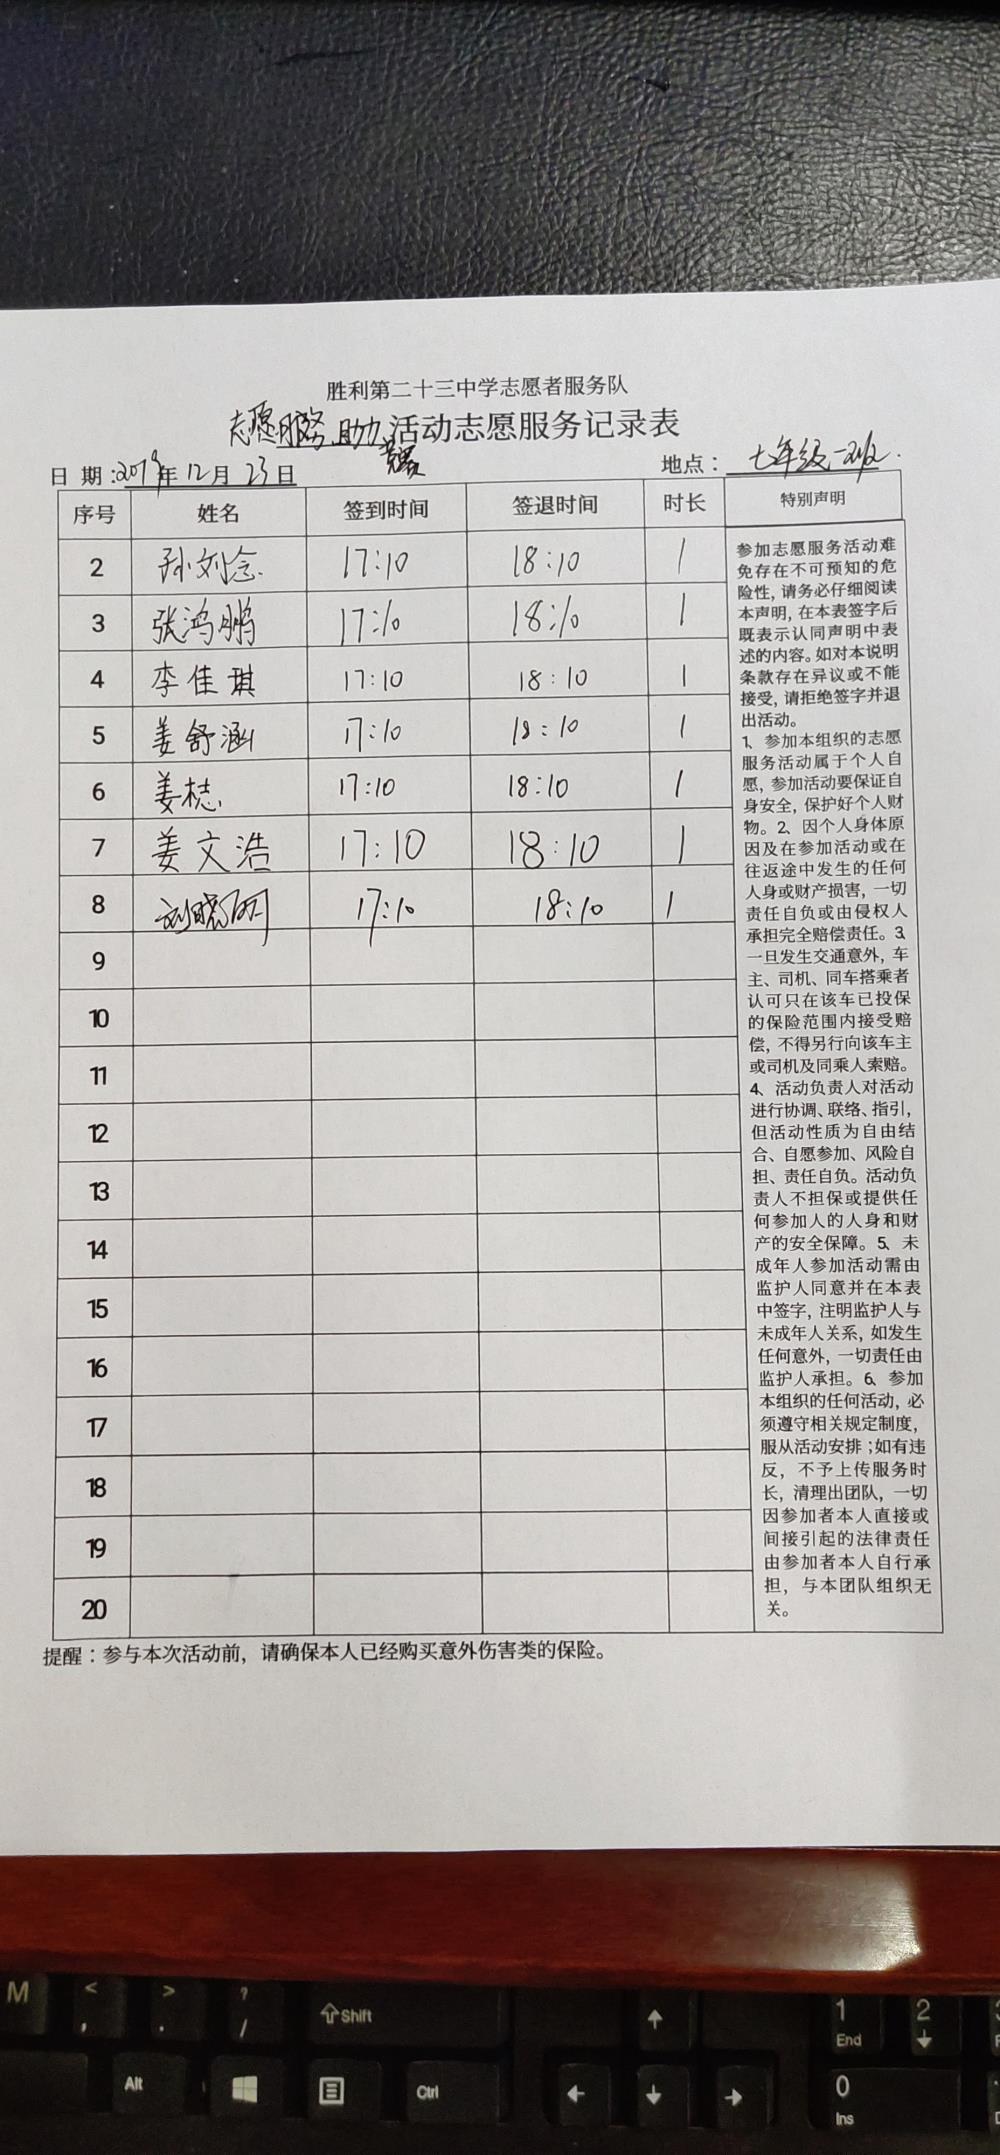 胜利第二十三中学志愿者服务队
志愿服务 助力 活动志愿服务记录表
日 期:2019年12月23日
地点：七年级一班.
序号 姓名 签到时间 签退时间 时长 特别声明
2 孙刘念 17:10 18:10 1
3 张鸿鹏 17:10 18:10 1
4 李佳琪 17:10 18:10 1
5 姜舒涵 17:10 18:10 1
6 姜梽 17:10 18:10 1
7 姜文浩 17:10 18:10 1
8 刘晓 17:10 18:10 1
9
10
11
12
13
14
15
16
17
18
19
20
参加志愿服务活动难
免存在不可预知的危
险性, 请务必仔细阅读
本声明, 在本表签字后
既表示认同声明中表
述的内容。如对本说明
条款存在异议或不能
接受, 请拒绝签字并退
出活动。
1、参加本组织的志愿
服务活动属于个人自
愿, 参加活动要保证自
身安全, 保护好个人财
物。2、因个人身体原
因及在参加活动或在
往返途中发生的任何
人身或财产损害, 一切
责任自负或由侵权人
承担完全赔偿责任。3、
一旦发生交通意外, 车
主、司机、同车搭乘者
认可只在该车已投保
的保险范围内接受赔
偿, 不得另行向该车主
或司机及同乘人索赔。
4、活动负责人对活动
进行协调、联络、指引,
但活动性质为自由结
合、自愿参加、风险自
担、责任自负。活动负
责人不担保或提供任
何参加人的人身和财
产的安全保障。5、未
成年人参加活动需由
监护人同意并在本表
中签字, 注明监护人与
未成年人关系, 如发生
任何意外, 一切责任由
监护人承担。6、参加
本组织的任何活动, 必
须遵守相关规定制度,
服从活动安排；如有违
反, 不予上传服务时
长, 清理出团队, 一切
因参加者本人直接或
间接引起的法律责任
由参加者本人自行承
担, 与本团队组织无
关。
提醒：参与本次活动前, 请确保本人已经购买意外伤害类的保险。
M < , > . ? / Shift 1 End 2
Alt Ctrl 0 Ins